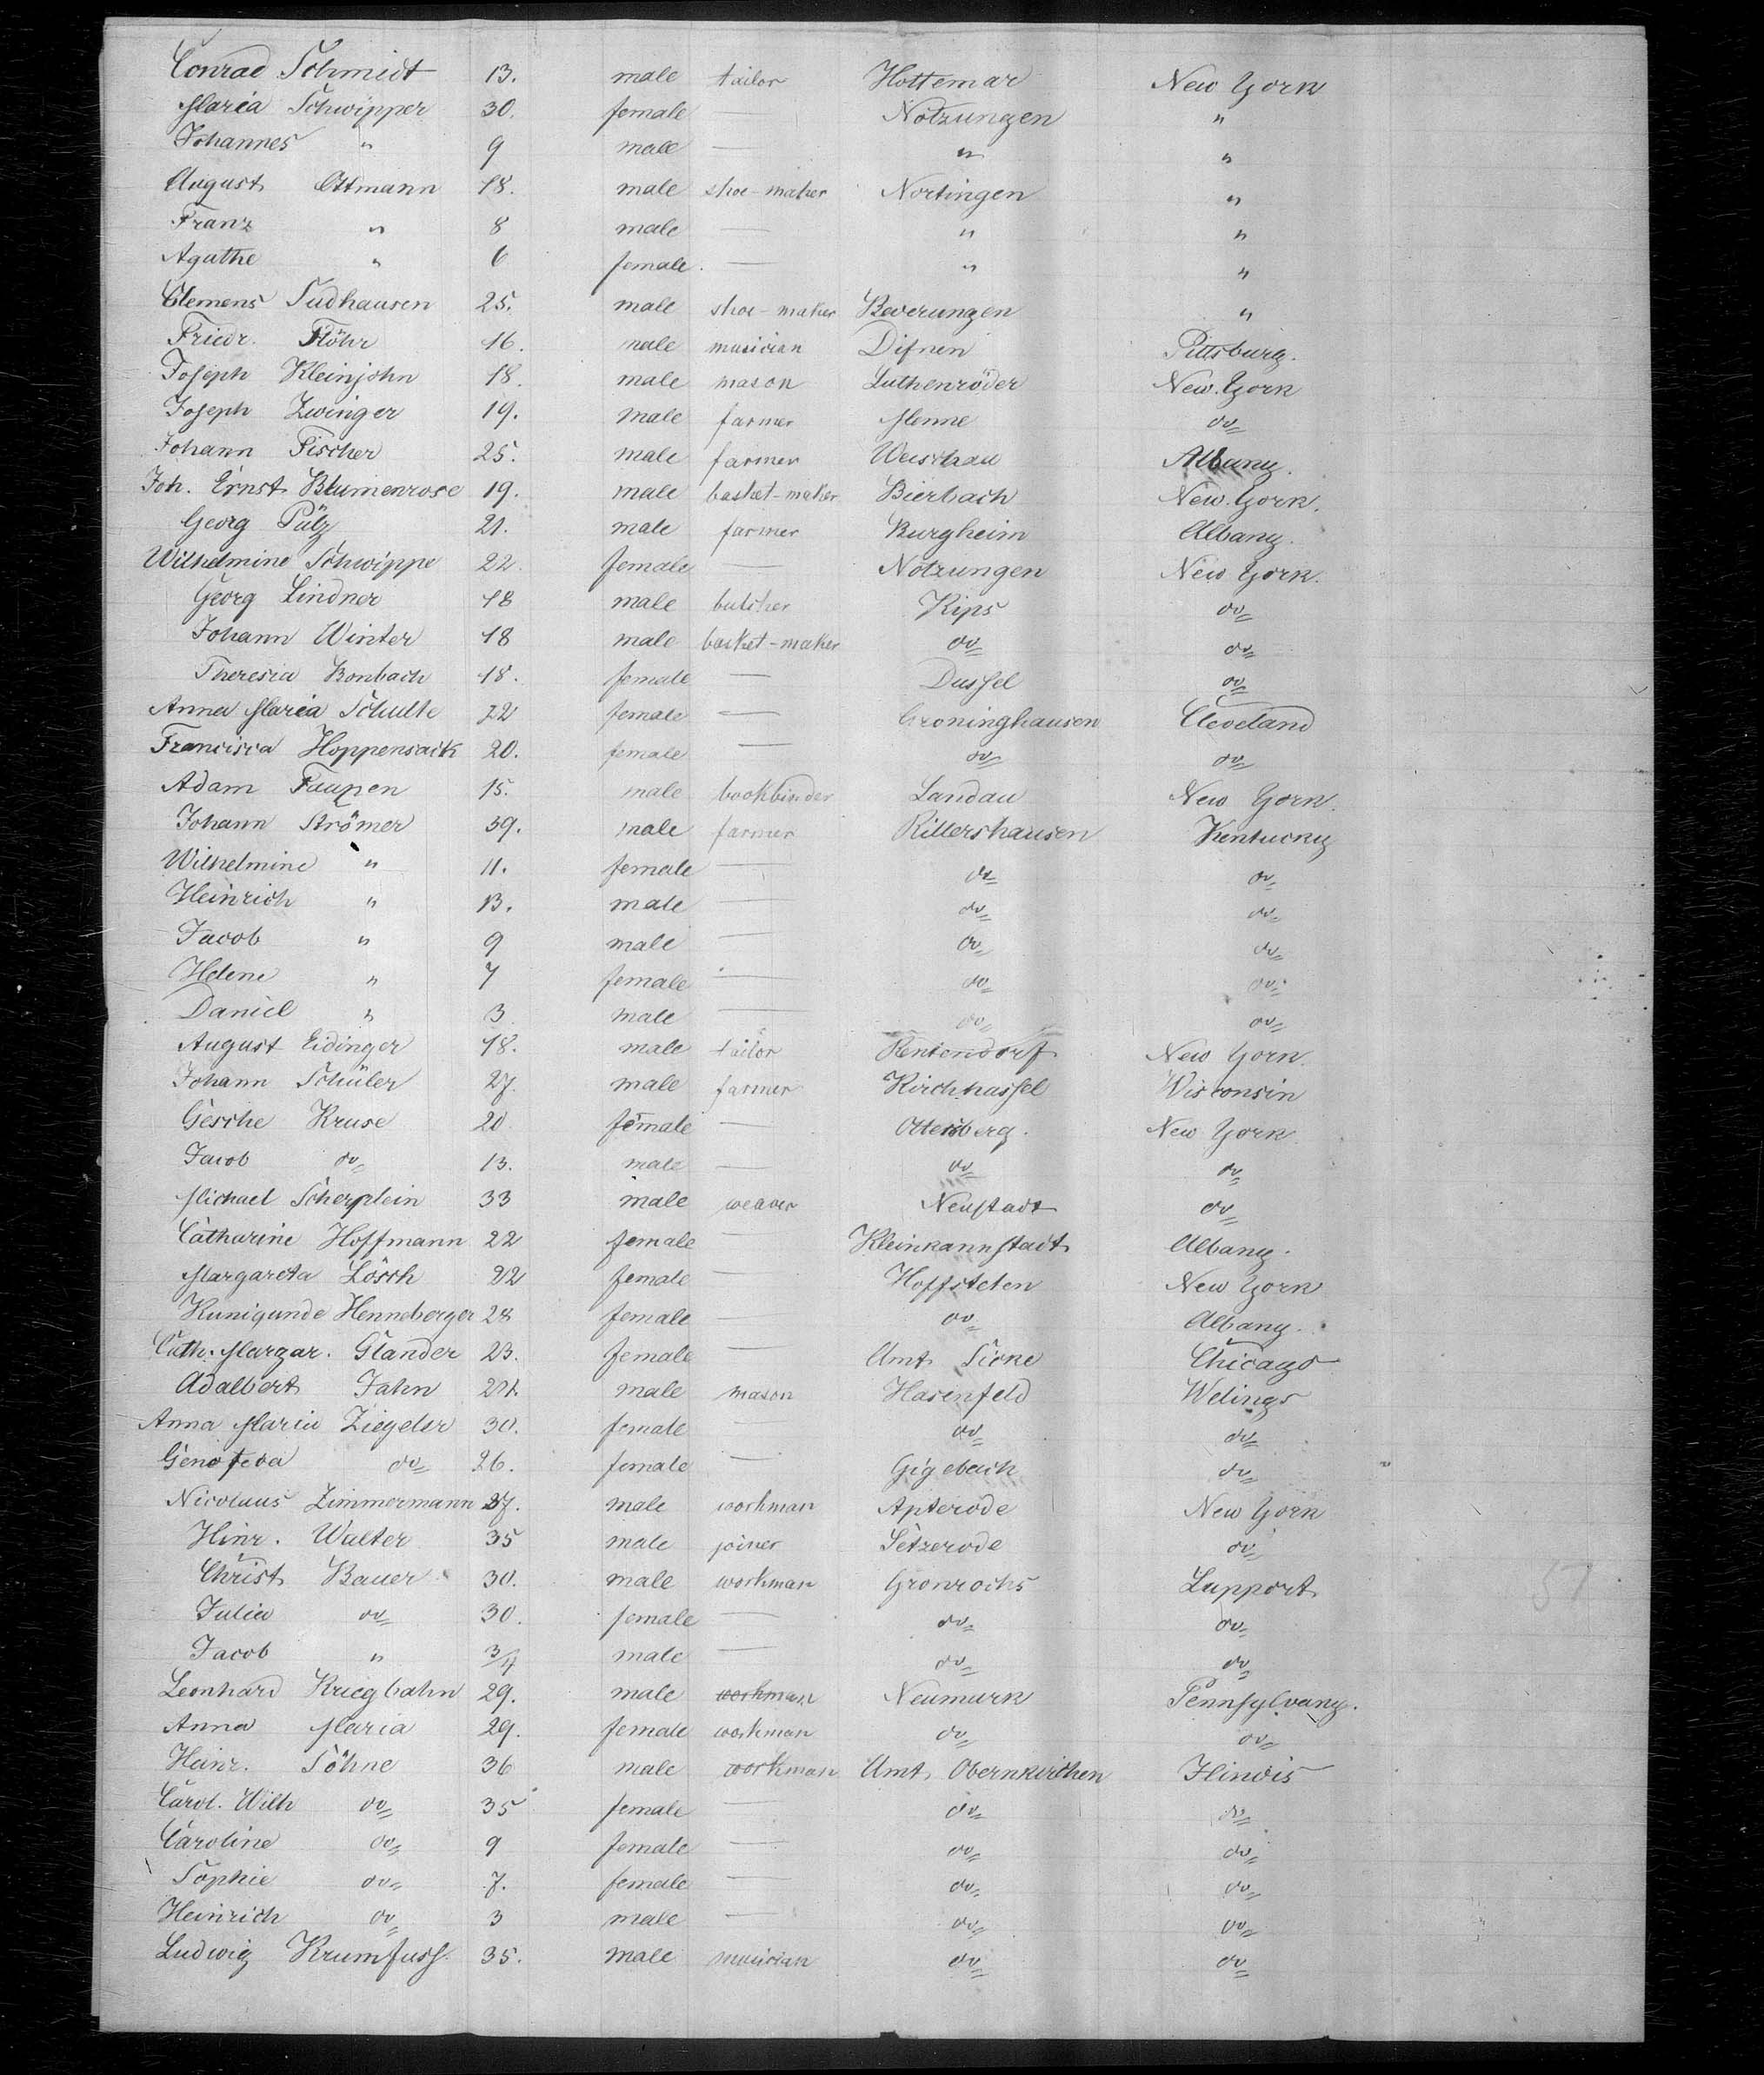 Conrad Schmidt 13. male tailor Hottemar New York
Maria Schwipper 30. female — Nötzungen "
Johannes " 9 male — " "
August Ottmann 18. male shoe-maker Nortingen "
Franz " 8 male — " "
Agathe " 6 female. — " "
Clemens Sudhausen 25. male shoe-maker Beverungen "
Friedr. Flöhr 16. male musician Difnen Pittsburg.
Joseph Kleinjohn 18. male mason Luthenröder New York
Joseph Zwinger 19. male farmer Menne do
Johann Fischer 25. male farmer Weischau Albany.
Joh. Ernst Blumenrose 19. male basket-maker Bierbach New York.
Georg Pütz 21. male farmer Burgheim Albany.
Wilhelmine Schwippe 22. female — Nötzungen New York.
Georg Lindner 18 male butcher Kips do
Johann Winter 18 male basket-maker do do
Theresia Bonbach 18. female — Dussel do
Anna Maria Schulte 22 female — Croninghausen Cleveland
Francisca Hoppensack 20. female — do do
Adam Faupen 15. male bookbinder Landau New York.
Johann Strömer 39. male farmer Rittershausen Kentucky
Wilhelmine " 11. female — do do
Heinrich " 13. male — do do
Jacob " 9 male — do do
Helene " 7 female — do do
Daniel " 3 male — do do
August Eidinger 18. male tailor Rentendorf New York.
Johann Schüler 27. male farmer Kirchhassel Wisconsin
Gesche Kruse 20. female — Ottersberg. New York
Jacob do 13. male — do do
Michael Scherplein 33 male weaver Neustadt do
Catharine Hoffmann 22 female — Kleinkannstadt Albany.
Margareta Lösch 22 female — Hoffsteten New York
Kunigunde Henneberger 28 female — do Albany.
Cath. Margar. Glander 23. female — Amt Sicke Chicago
Adalbert Jahn 21. male mason Hasenfeld Welings
Anna Maria Ziegeler 30. female — do do
Genofeva do 26. female — Gigebach do
Nicolaus Zimmermann 27. male workman Apterode New York
Hinr. Walter 35 male joiner Setzerode do
Christ Bauer 30. male workman Gronrochs Lupport
Julia do 30. female — do do
Jacob " 3/4 male — do do
Leonhard Kriegbahn 29. male workman Neumark Pennsylvany.
Anna Maria 29. female workman do do
Heinr. Söhne 36 male workman Amt Obernkirchen Ilinois
Carol. Wilh do 35 female — do do
Caroline do 9 female — do do
Sophie do 7. female — do do
Heinrich do 3 male — do do
Ludwig Krumfuss. 35. male musician do do